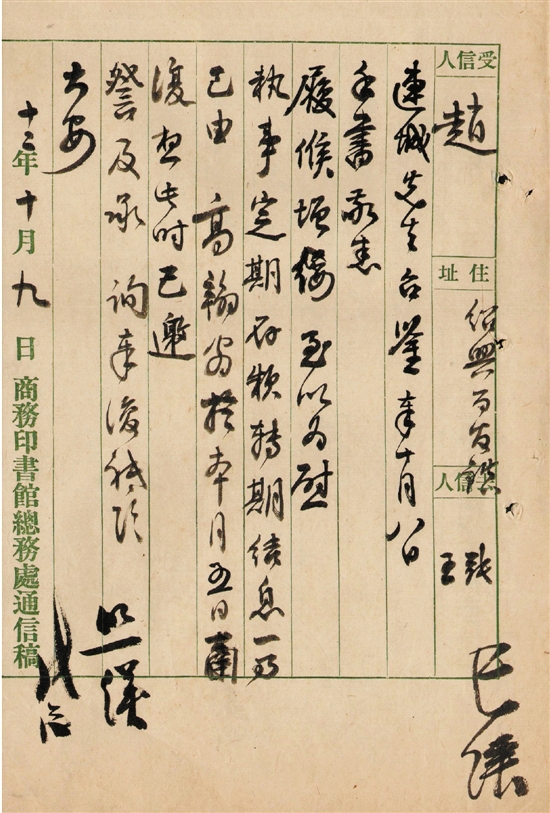 受信人
趙
住址
紹興百官鎮
發信人
張 王
已漢
連城先生台鑒奉十月八日
手書敬悉
履候增綏至以為慰
執事定期存款轉期結息一節
已由 高翰翁於本月五日函
復想此時已邀
詧及承 詢奉復祗頌
大安
十二年十月九日 商務印書館總務處通信稿